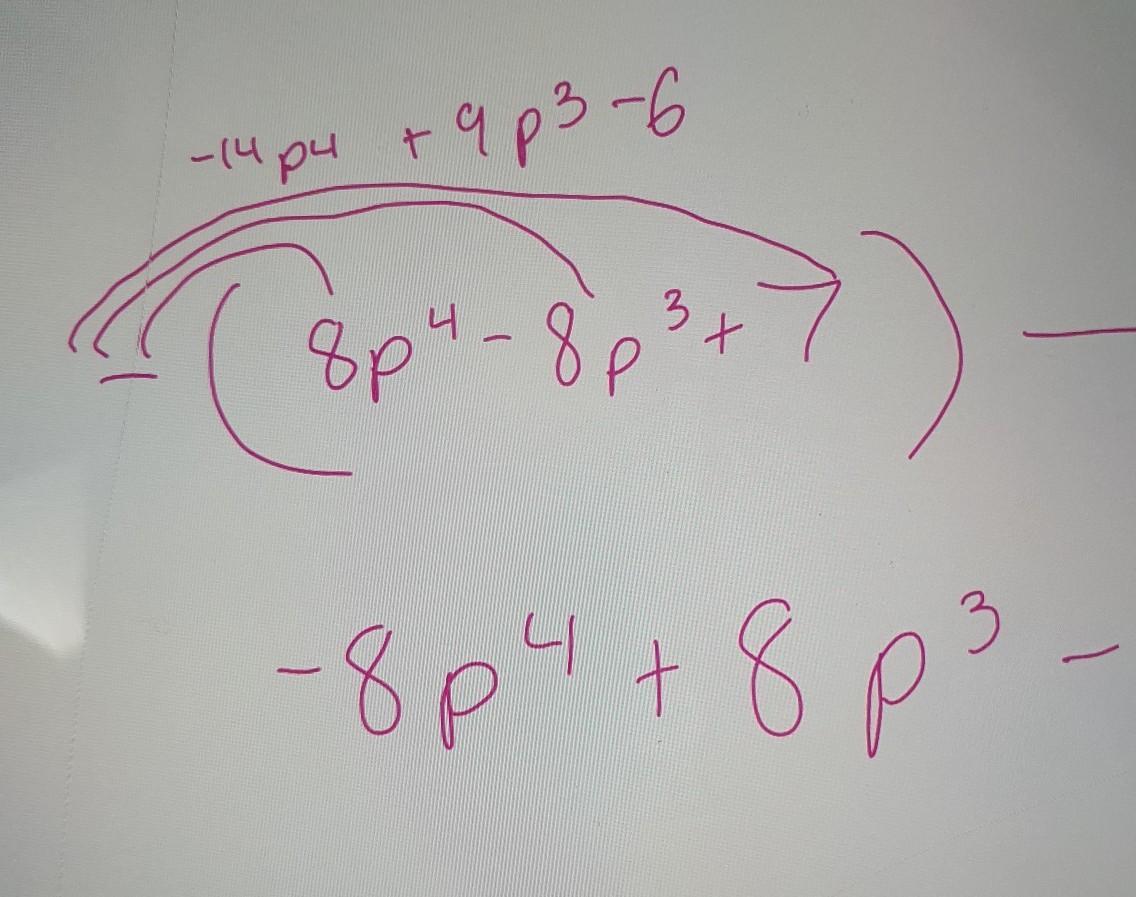 -14p⁴ + 9p³ - 6
- (8p⁴ - 8p³ + 7) -
-8p⁴ + 8p³ -